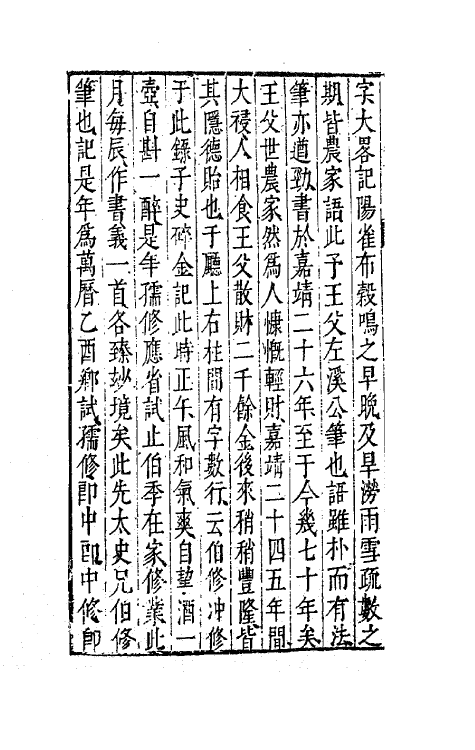 字大畧記陽雀布穀鳴之早晚及旱澇雨雪疏數之
期皆農家語此予王父左溪公筆也語雖朴而有法
筆亦遒勁書於嘉靖二十六年至于今幾七十年矣
王父世農家然為人慷慨輕財嘉靖二十四五年間
大祲人相食王父散財二千餘金後來稍稍豐隆皆
其隱德貽也于廳上右柱間有字數行云伯修冲修
于此錄子史碎金記此時正午風和氣爽自望酒一
壺自斟一醉是年孺修應省試止伯季在家修業此
月每辰作書義一首各臻妙境矣此先太史兄伯修
筆也記是年為萬曆乙酉鄉試孺修即中郎中修即